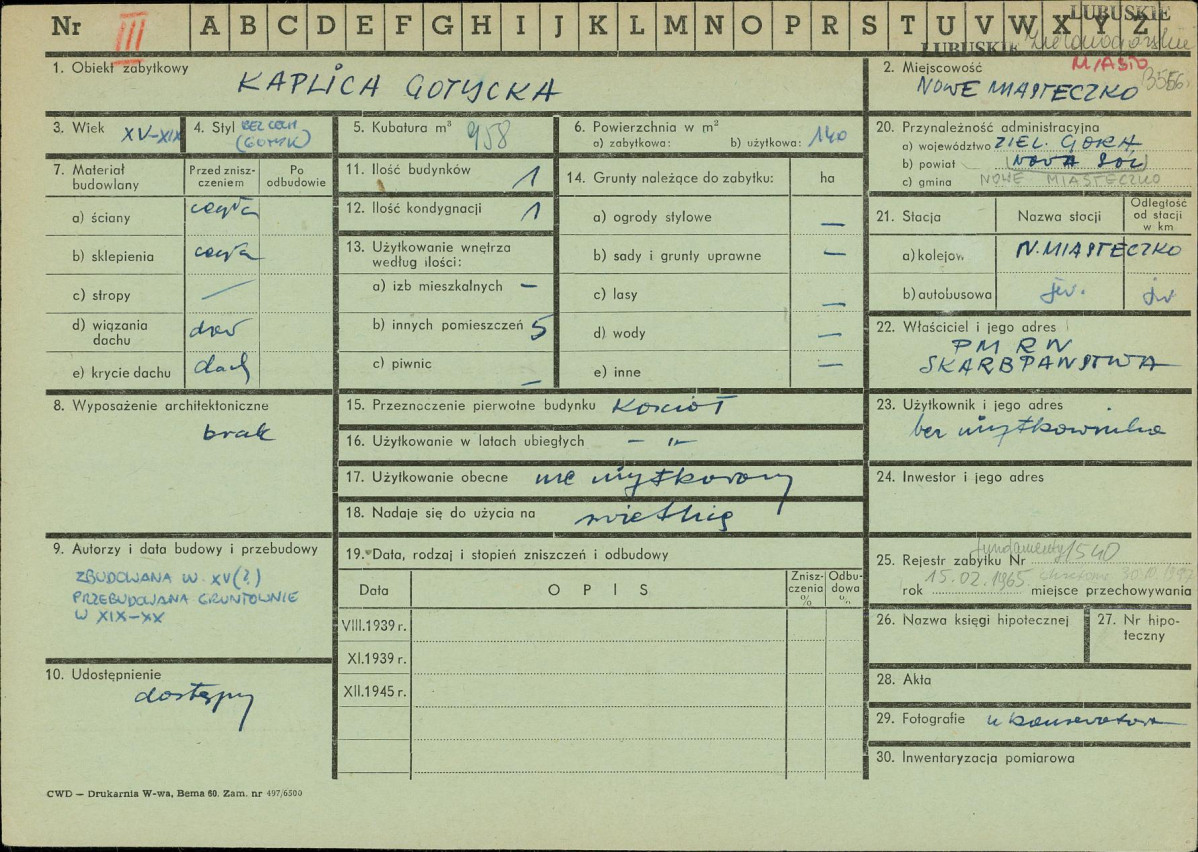 Nr III A B C D E F G H I J K L M N O P R S T U V W X Y Z
LUBUSKIE
LUBUSKIE
1. Obiekt zabytkowy KAPLICA GOTYCKA
2. Miejscowość MIASTO
NOWE MIASTECZKO
3. Wiek XV-XIX
4. Styl BEZ CECH
(GOTYK)
5. Kubatura m³ 958
6. Powierzchnia w m²
a) zabytkowa: b) użytkowa: 140
20. Przynależność administracyjna
a) województwo ZIEL. GÓRA
b) powiat (NOWA SÓL)
c) gmina NOWE MIASTECZKO
7. Materiał budowlany
Przed znisz-czeniem
Po odbudowie
a) ściany cegła
b) sklepienia cegła
c) stropy
d) wiązania dachu drew
e) krycie dachu dach
11. Ilość budynków 1
12. Ilość kondygnacji 1
13. Użytkowanie wnętrza
według ilości:
a) izb mieszkalnych –
b) innych pomieszczeń 5
c) piwnic –
14. Grunty należące do zabytku: ha
a) ogrody stylowe –
b) sady i grunty uprawne –
c) lasy –
d) wody –
e) inne –
21. Stacja
Nazwa stacji
Odległość od stacji w km
a) kolejow. N. MIASTECZKO
b) autobusowa jw. jw
22. Właściciel i jego adres
PMRN
SKARB PAŃSTWA
8. Wyposażenie architektoniczne
brak
15. Przeznoczenie pierwotne budynku Kościół
16. Użytkowanie w latach ubiegłych – „–
17. Użytkowanie obecne nie użytkowany
18. Nadaje się do użycia na świetlicę
23. Użytkownik i jego adres
bez użytkownika
24. Inwestor i jego adres
9. Autorzy i data budowy i przebudowy
ZBUDOWANA W XV(?)
PRZEBUDOWANA GRUNTOWNIE
W XIX-XX
19. Data, rodzaj i stopień zniszczeń i odbudowy
Data O P I S Znisz-czenia % Odbu-dowa %
VIII.1939 r.
XI.1939 r.
XII.1945 r.
25. Rejestr zabytku Nr fundamenty 1540
rok 15.02.1965 miejsce przechowywania
26. Nazwa księgi hipotecznej
27. Nr hipo-teczny
10. Udostępnienie
dostępny
28. Akta
29. Fotografie u konserwatora
30. Inwentaryzacja pomiarowa
CWD – Drukarnia W-wa, Bema 60. Zam. nr 497/6500